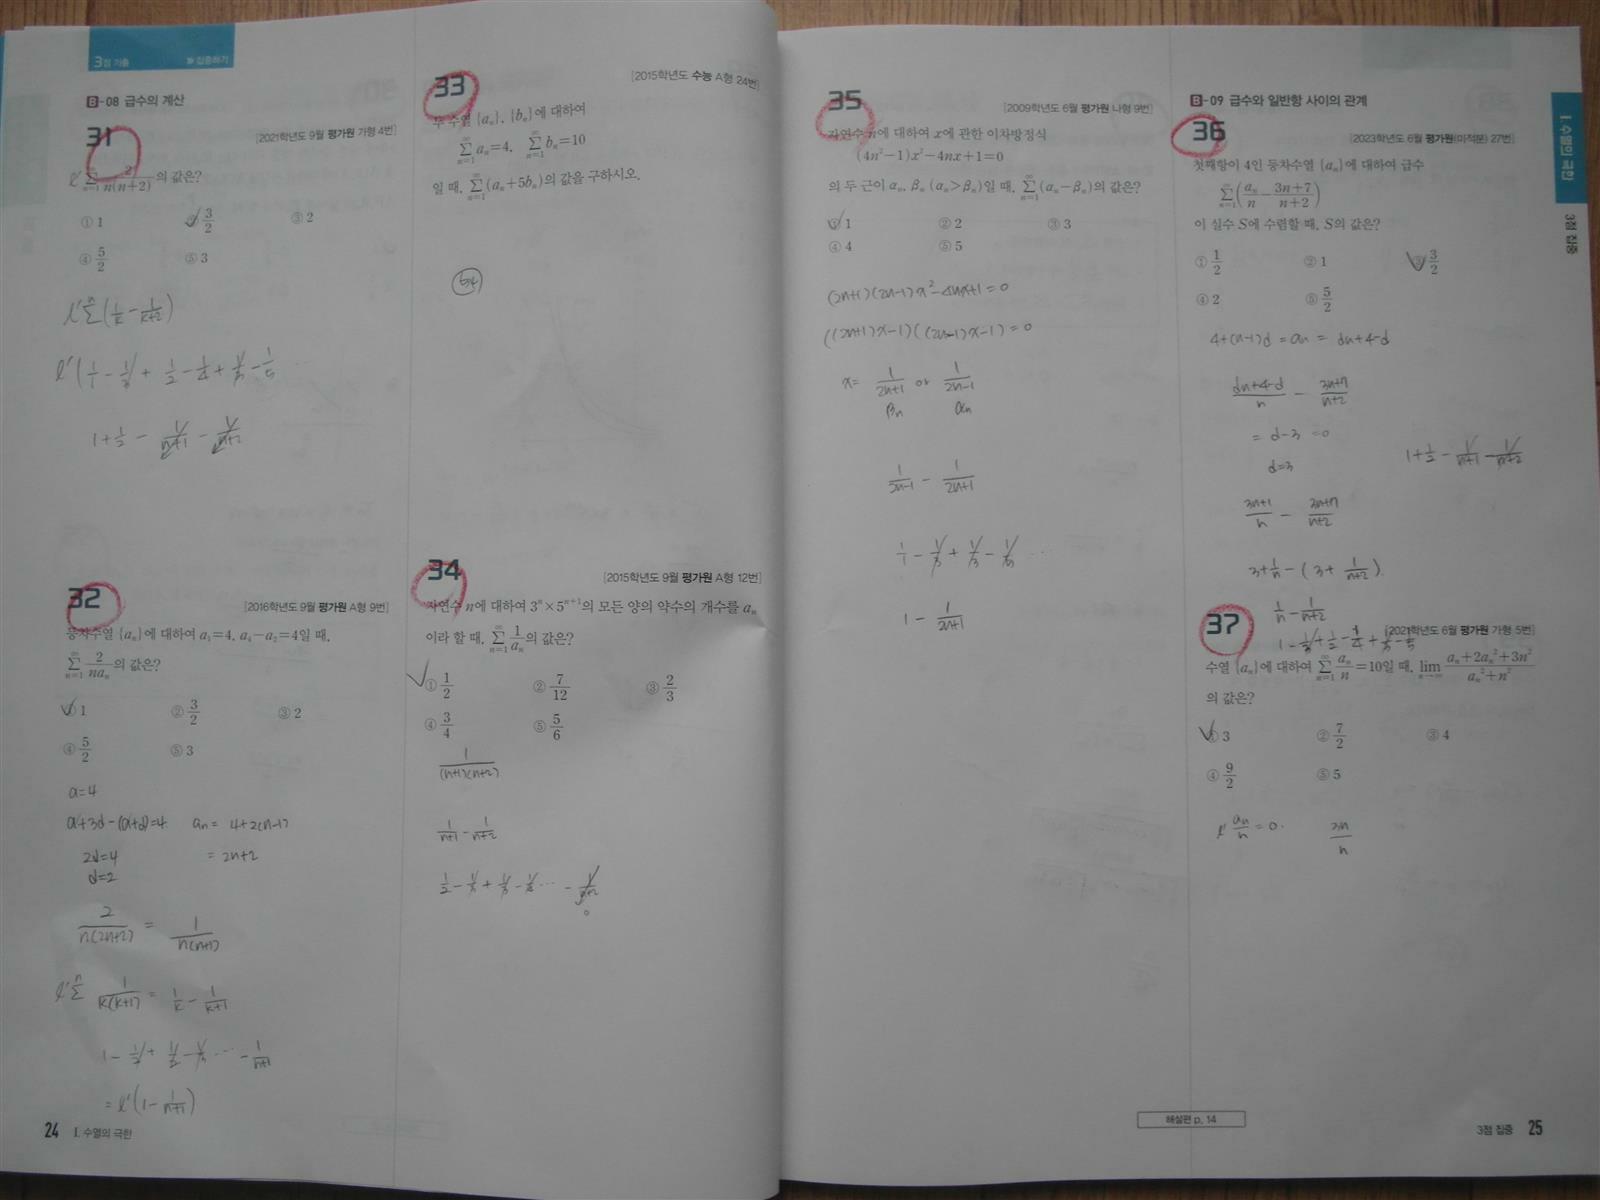 3점 기출 » 집중하기
B-08 급수의 계산
31
[2021학년도 9월 평가원 가형 4번]
∑_{n=1}^{∞} 2/n(n+2) 의 값은?
① 1 ② 3/2 ③ 2
④ 5/2 ⑤ 3
∑(1/k - 1/k+2)
1+1/2 - 1/n+1 - 1/n+2
32
[2016학년도 9월 평가원 A형 9번]
등차수열 {aₙ}에 대하여 a₁=4, a₄-a₂=4일 때,
∑_{n=1}^{∞} 2/naₙ 의 값은?
① 1 ② 3/2 ③ 2
④ 5/2 ⑤ 3
a=4
a+3d-(a+d)=4 aₙ= 4+2(n-1)
2d=4 = 2n+2
d=2
2/n(2n+2) = 1/n(n+1)
1/k(k+1) = 1/k - 1/k+1
1 - 1/2 + 1/2 - 1/3 ... - 1/n+1
(1 - 1/n+1)
24 I. 수열의 극한
33
[2015학년도 수능 A형 24번]
두 수열 {aₙ}, {bₙ}에 대하여
∑_{n=1}^{∞} aₙ=4, ∑_{n=1}^{∞} bₙ=10
일 때, ∑_{n=1}^{∞} (aₙ+5bₙ)의 값을 구하시오.
34
[2015학년도 9월 평가원 A형 12번]
자연수 n에 대하여 3ⁿ×5ⁿ⁺¹의 모든 양의 약수의 개수를 aₙ
이라 할 때, ∑_{n=1}^{∞} 1/aₙ 의 값은?
① 1/2 ② 7/12 ③ 2/3
④ 3/4 ⑤ 5/6
1/(n+1)(n+2)
1/n+1 - 1/n+2
1/2 - 1/3 + 1/3 - 1/4 ... - 1/n+2
0
35
[2009학년도 6월 평가원 나형 9번]
자연수 n에 대하여 x에 관한 이차방정식
(4n²-1)x²-4nx+1=0
의 두 근이 αₙ, βₙ (αₙ>βₙ)일 때, ∑_{n=1}^{∞} (αₙ-βₙ)의 값은?
① 1 ② 2 ③ 3
④ 4 ⑤ 5
(2n+1)(2n-1)x²-4nx+1=0
((2n+1)x-1)((2n-1)x-1)=0
x= 1/2n+1 or 1/2n-1
βₙ αₙ
1/2n-1 - 1/2n+1
1/1 - 1/3 + 1/3 - 1/5 ...
1 - 1/2n+1
해설편 p. 14
B-09 급수와 일반항 사이의 관계
36
[2023학년도 6월 평가원(미적분) 27번]
첫째항이 4인 등차수열 {aₙ}에 대하여 급수
∑_{n=1}^{∞} (aₙ/n - 3n+7/n+2)
이 실수 S에 수렴할 때, S의 값은?
① 1/2 ② 1 ③ 3/2
④ 2 ⑤ 5/2
4+(n-1)d = aₙ = dn+4-d
dn+4-d/n - 3n+7/n+2
= d-3 =0
d=3
1+1/2 - 1/n+1 - 1/n+2
3n+1/n - 3n+7/n+2
3+1/n - (3+ 1/n+2)
1/n - 1/n+2
1-1/3+1/2-1/4+1/3-1/5
37
[2021학년도 6월 평가원 가형 5번]
수열 {aₙ}에 대하여 ∑_{n=1}^{∞} aₙ/n =10일 때, lim_{n→∞} aₙ+2aₙ²+3n²/aₙ²+n²
의 값은?
① 3 ② 7/2 ③ 4
④ 9/2 ⑤ 5
aₙ/n = 0
I. 수열의 극한
3점 집중
3점 집중 25